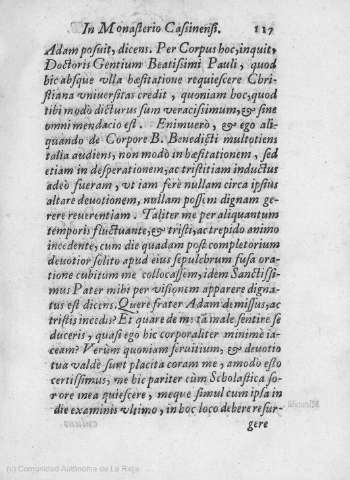 In Monasterio Casinensi. 117
Adam posuit, dicens. Per Corpus hoc, inquit,
Doctoris Gentium Beatissimi Pauli, quod
hic absque vlla hæsitatione requiescere Chri-
stiana vniuersitas credit, quoniam hoc, quod
tibi modò dicturus sum veracissimum, & sine
omni mendacio est. Enimuerò, & ego ali-
quando de Corpore B. Benedicti multotiens
talia audiens, non modò in hæsitationem, sed
etiam in desperationem, ac tristitiam inductus
adeò fueram, vt iam ferè nullam circa ipsius
altare deuotionem, nullam possem dignam ge-
rere reuerentiam. Taliter me per aliquantum
temporis fluctuante, & tristi, ac trepido animo
incedente, cum die quadam post completorium
deuotior solito apud eius sepulcbrum fusa ora-
tione cubitum me collocassem, idem Sanctissi-
mus Pater mihi per visionem apparere digna-
tus est dicens. Quare frater Adam demissus, ac
tristis incedis? Et quare de me tā malè sentire se
duceris, quasi ego hic corporaliter minimè ia-
ceam? Verùm quoniam seruitium, & deuotio
tua valdè sunt placita coram me, amodò esto
certissimus, me hic pariter cùm Scholastica so-
rore mea quiescere, meque simul cum ipsa in
die examinis vltimo, in hoc loco debere resur-
gere
(c) Comunidad Autónoma de La Rioja